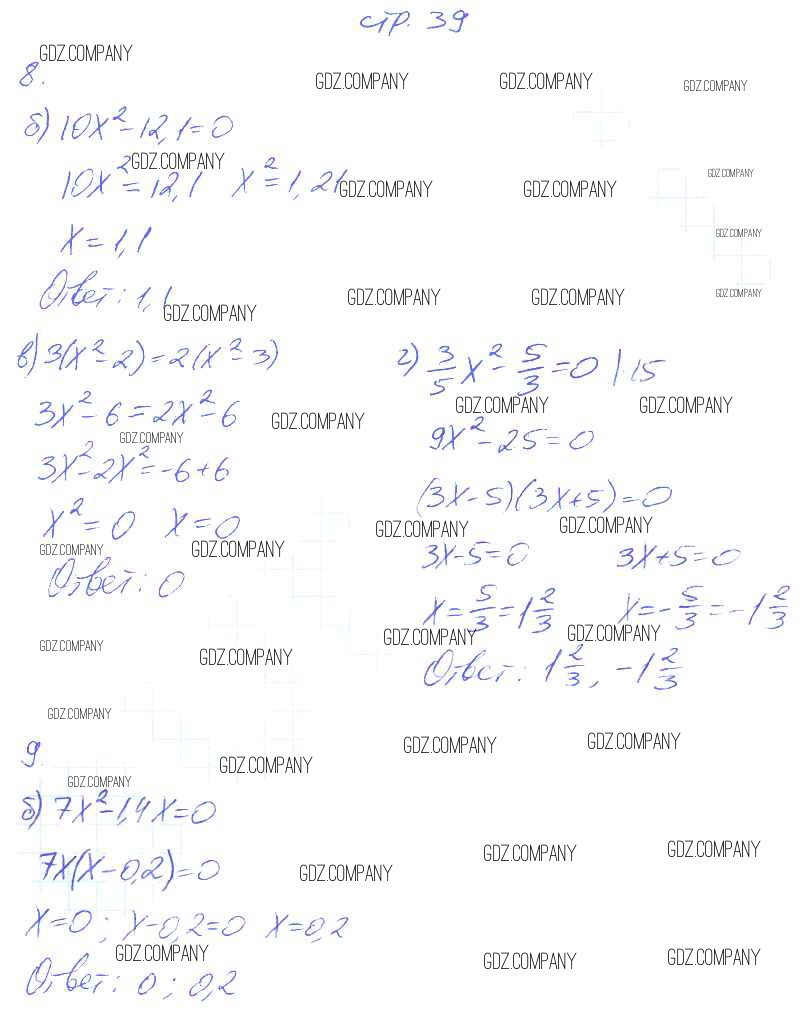 стр. 39
GDZ.COMPANY
8.
GDZ.COMPANY GDZ.COMPANY GDZ.COMPANY
б) 10x² - 12,1 = 0
GDZ.COMPANY
10x² = 12,1 x² = 1,21
GDZ.COMPANY GDZ.COMPANY GDZ.COMPANY
x = 1,1
GDZ.COMPANY
Ответ: 1,1
GDZ.COMPANY GDZ.COMPANY GDZ.COMPANY GDZ.COMPANY
в) 3(x² - 2) = 2(x² - 3)
3x² - 6 = 2x² - 6
GDZ.COMPANY
GDZ.COMPANY
3x² - 2x² = -6 + 6
x² = 0 x = 0
GDZ.COMPANY GDZ.COMPANY
Ответ: 0
г) 3/5 x² - 5/3 = 0 | · 15
GDZ.COMPANY GDZ.COMPANY
9x² - 25 = 0
(3x - 5)(3x + 5) = 0
GDZ.COMPANY GDZ.COMPANY
3x - 5 = 0 3x + 5 = 0
x = 5/3 = 1 2/3 x = - 5/3 = -1 2/3
GDZ.COMPANY GDZ.COMPANY
Ответ: 1 2/3, -1 2/3
GDZ.COMPANY GDZ.COMPANY
GDZ.COMPANY
9.
GDZ.COMPANY GDZ.COMPANY GDZ.COMPANY
GDZ.COMPANY
б) 7x² - 1,4x = 0
7x(x - 0,2) = 0
GDZ.COMPANY GDZ.COMPANY GDZ.COMPANY
x = 0; x - 0,2 = 0 x = 0,2
GDZ.COMPANY GDZ.COMPANY GDZ.COMPANY
Ответ: 0; 0,2